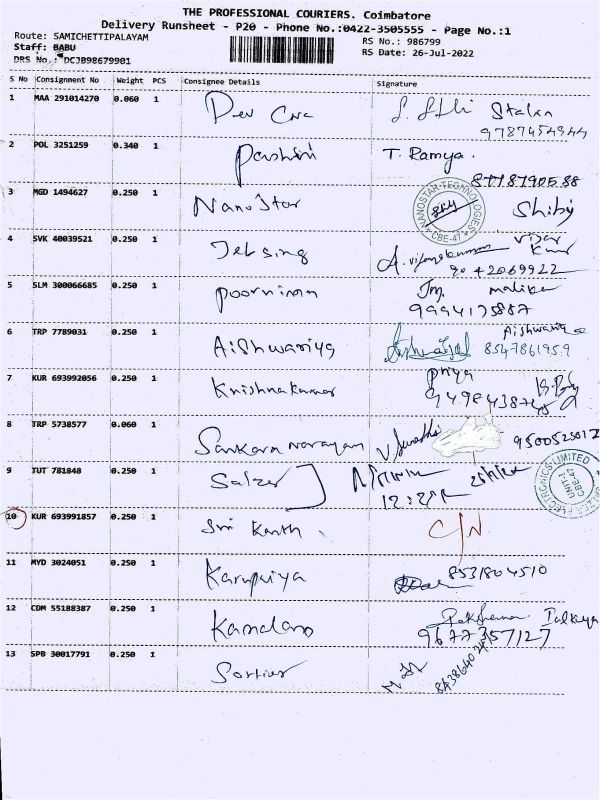 THE PROFESSIONAL COURIERS. Coimbatore
Delivery Runsheet - P20 - Phone No.:0422-3505555 - Page No.:1
Route: SAMICHETTIPALAYAM
RS No.: 986799
Staff: BABU
RS Date: 26-Jul-2022
DRS No.: DCJB98679901
S No Consignment No Weight PCS Consignee Details Signature
1 MAA 291014270 0.060 1 Dev Stalin
2 POL 3251259 0.340 1 Parshini T. Ramya.
8778790588
3 MGD 1494627 0.250 1 NanoStar NANOSTAR TECHNOLOGIES CBE-47 Shiby
4 SVK 40039521 0.250 1 Jetsing A. Vijayakumar Vijay Kumar
9042069922
5 SLM 300066685 0.250 1 Poornima
9994175887
6 TRP 7789031 0.250 1 Aishwariya Aishwariya
8547861959
7 KUR 693992056 0.250 1 Krishnakumar Priya
8 TRP 5738577 0.060 1 Sankara Narayan
9 TUT 781848 0.250 1 Salzer ELECTRONICS LIMITED UNIT-1 CBE-47
10 KUR 693991857 0.250 1 Sri Kanth. C/N
11 MYD 3024051 0.250 1 Karupuiya 8531804510
12 CDM 55188387 0.250 1 Kandan
9677357127
13 SPB 30017791 0.250 1